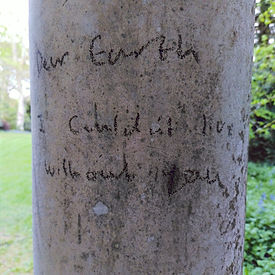 Dear Earth
I Couldn't live
without you